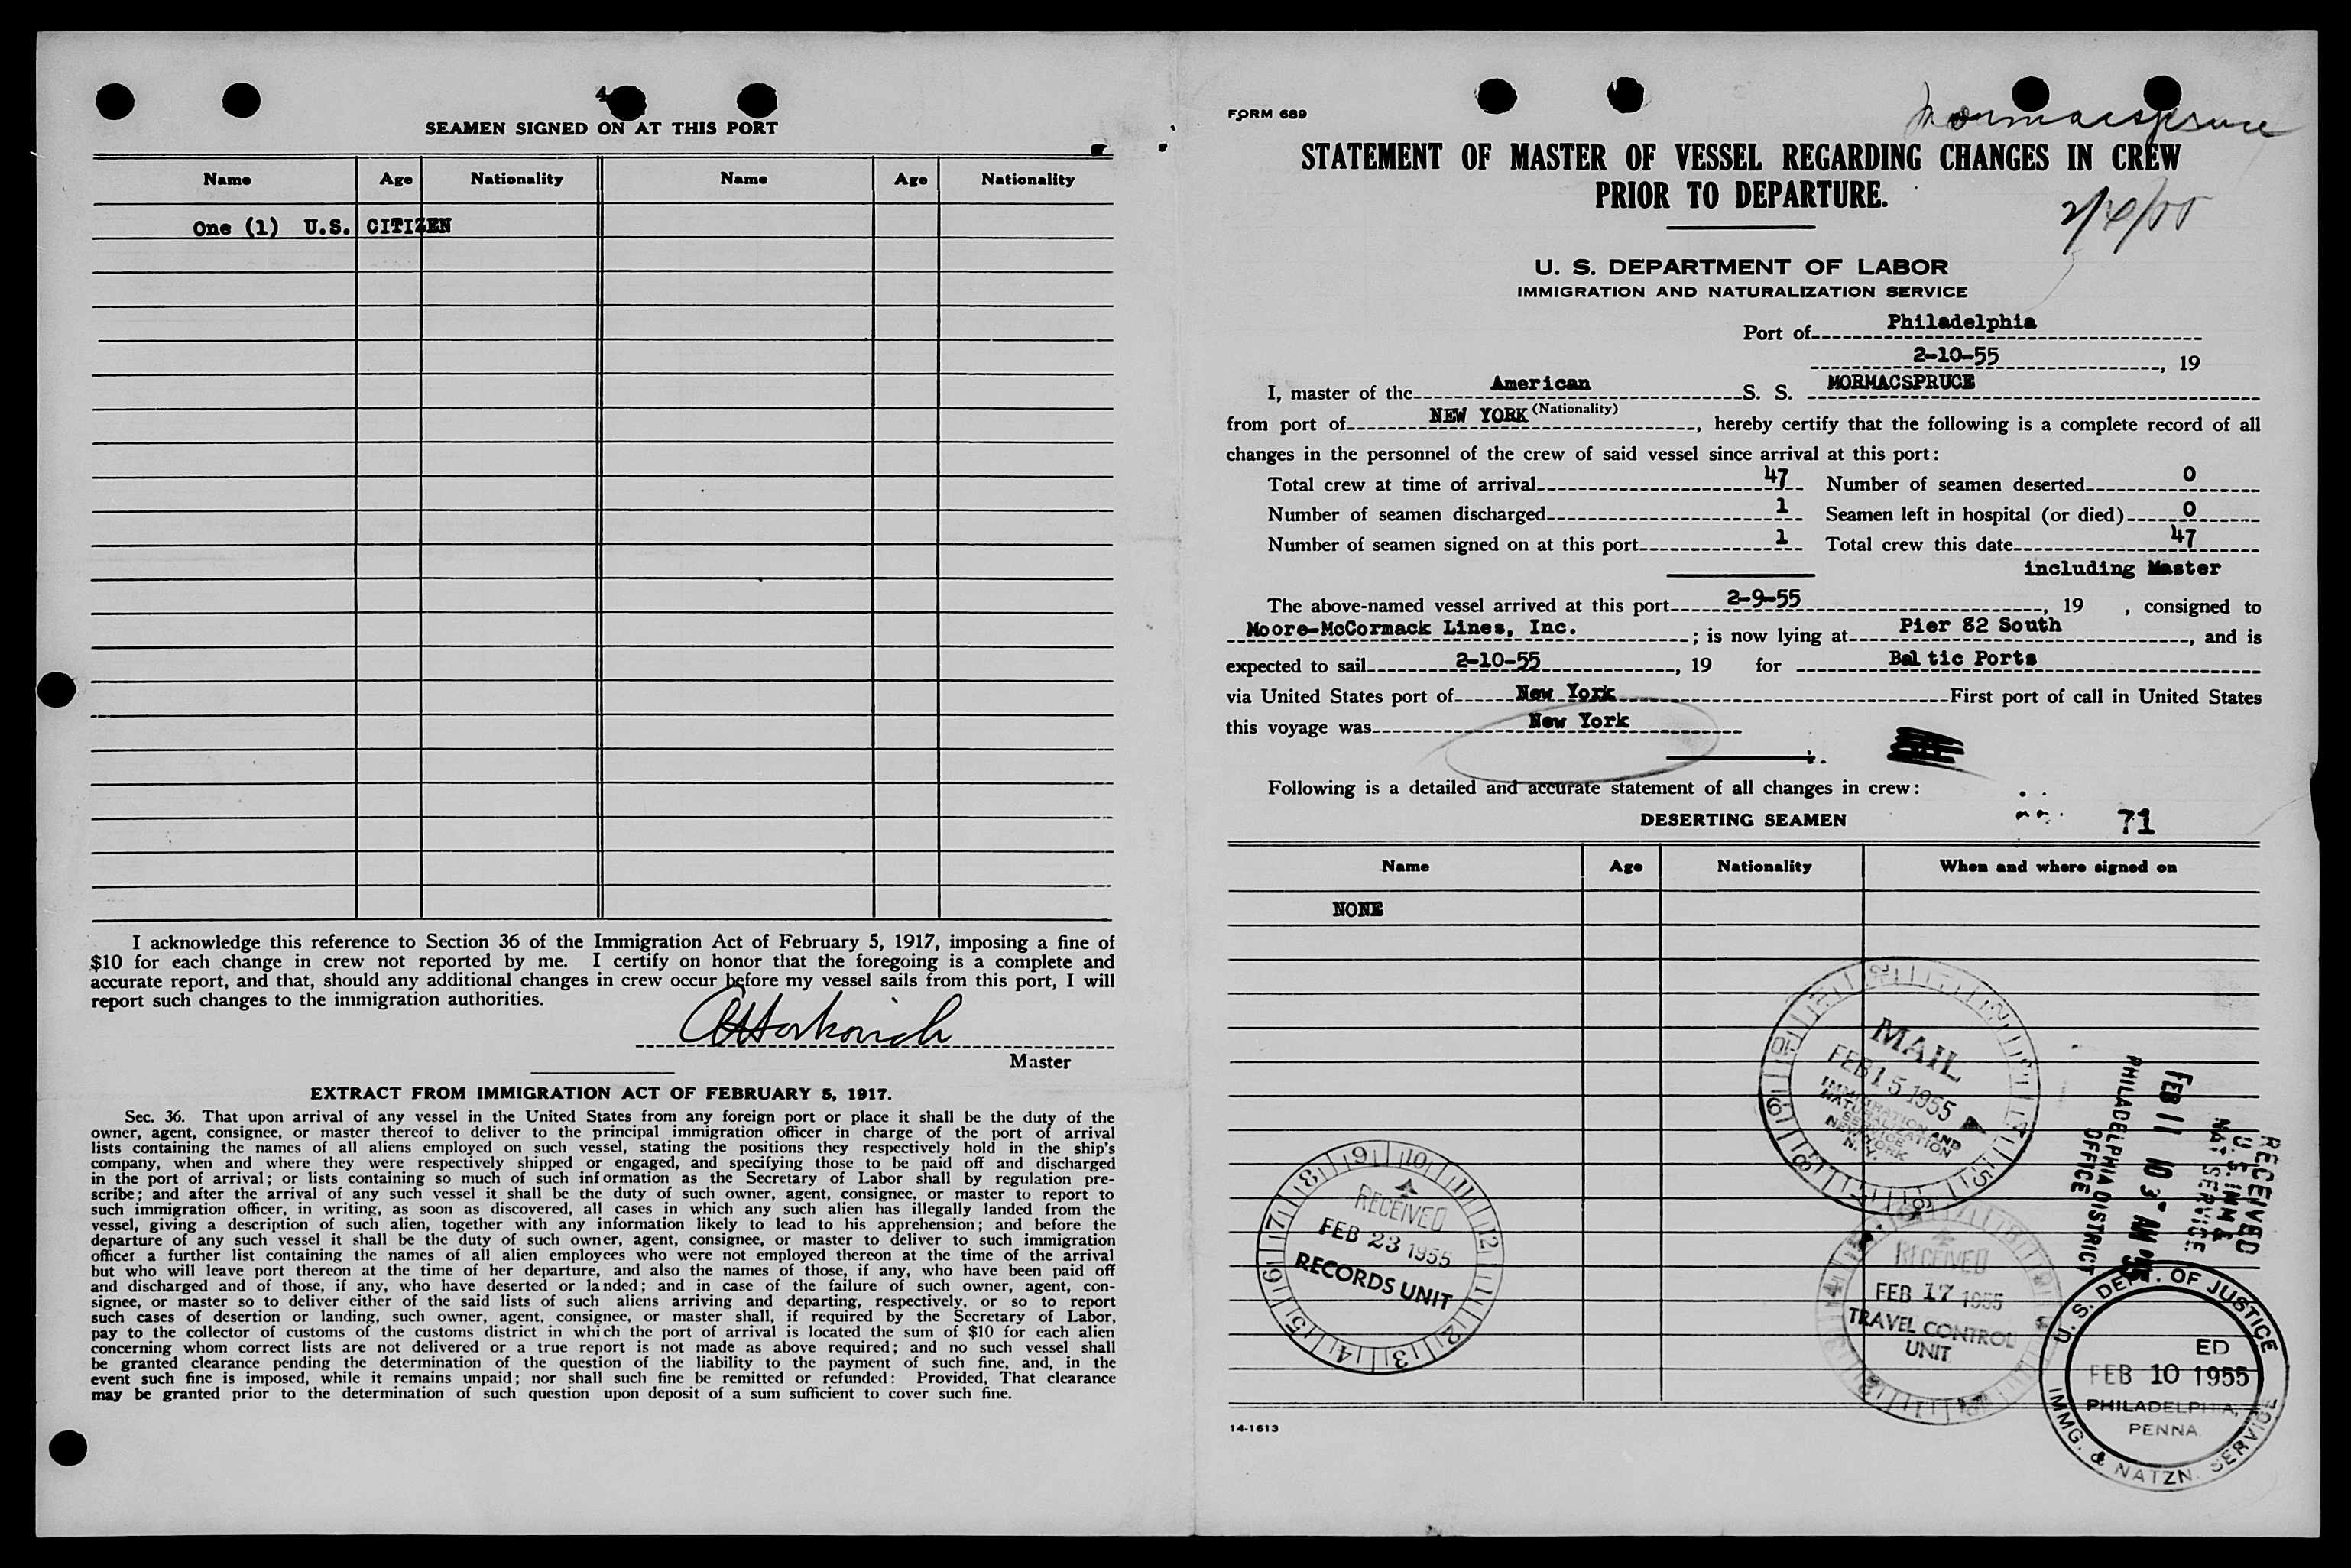 4
SEAMEN SIGNED ON AT THIS PORT
Name Age Nationality Name Age Nationality
One (1) U.S. CITIZEN
I acknowledge this reference to Section 36 of the Immigration Act of February 5, 1917, imposing a fine of
$10 for each change in crew not reported by me. I certify on honor that the foregoing is a complete and
accurate report, and that, should any additional changes in crew occur before my vessel sails from this port, I will
report such changes to the immigration authorities.
Master
EXTRACT FROM IMMIGRATION ACT OF FEBRUARY 5, 1917.
Sec. 36. That upon arrival of any vessel in the United States from any foreign port or place it shall be the duty of the
owner, agent, consignee, or master thereof to deliver to the principal immigration officer in charge of the port of arrival
lists containing the names of all aliens employed on such vessel, stating the positions they respectively hold in the ship's
company, when and where they were respectively shipped or engaged, and specifying those to be paid off and discharged
in the port of arrival; or lists containing so much of such information as the Secretary of Labor shall by regulation pre-
scribe; and after the arrival of any such vessel it shall be the duty of such owner, agent, consignee, or master to report to
such immigration officer, in writing, as soon as discovered, all cases in which any such alien has illegally landed from the
vessel, giving a description of such alien, together with any information likely to lead to his apprehension; and before the
departure of any such vessel it shall be the duty of such owner, agent, consignee, or master to deliver to such immigration
officer a further list containing the names of all alien employees who were not employed thereon at the time of the arrival
but who will leave port thereon at the time of her departure, and also the names of those, if any, who have been paid off
and discharged and of those, if any, who have deserted or landed; and in case of the failure of such owner, agent, con-
signee, or master so to deliver either of the said lists of such aliens arriving and departing, respectively, or so to report
such cases of desertion or landing, such owner, agent, consignee, or master shall, if required by the Secretary of Labor,
pay to the collector of customs of the customs district in which the port of arrival is located the sum of $10 for each alien
concerning whom correct lists are not delivered or a true report is not made as above required; and no such vessel shall
be granted clearance pending the determination of the question of the liability to the payment of such fine, and, in the
event such fine is imposed, while it remains unpaid; nor shall such fine be remitted or refunded: Provided, That clearance
may be granted prior to the determination of such question upon deposit of a sum sufficient to cover such fine.
FORM 689
Mormacspruce
STATEMENT OF MASTER OF VESSEL REGARDING CHANGES IN CREW
PRIOR TO DEPARTURE.
U. S. DEPARTMENT OF LABOR
IMMIGRATION AND NATURALIZATION SERVICE
Port of Philadelphia
2-10-55, 19
I, master of the American S. S. MORMACSPRUCE
(Nationality)
from port of NEW YORK, hereby certify that the following is a complete record of all
changes in the personnel of the crew of said vessel since arrival at this port:
Total crew at time of arrival 47 Number of seamen deserted 0
Number of seamen discharged 1 Seamen left in hospital (or died) 0
Number of seamen signed on at this port 1 Total crew this date 47
including Master
The above-named vessel arrived at this port 2-9-55, 19 , consigned to
Moore-McCormack Lines, Inc.; is now lying at Pier 82 South, and is
expected to sail 2-10-55, 19 for Baltic Ports
via United States port of New York First port of call in United States
this voyage was New York
Following is a detailed and accurate statement of all changes in crew:
DESERTING SEAMEN
71
Name Age Nationality When and where signed on
NONE
MAIL
FEB 15 1955
IMMIGRATION AND
NATURALIZATION
SERVICE
NEW YORK
N. Y.
RECEIVED
U.S. IMM &
NAT SERVICE
FEB 11
PHILADELPHIA DISTRICT
OFFICE
RECEIVED
FEB 23 1955
RECORDS UNIT
RECEIVED
FEB 17 1955
TRAVEL CONTROL
UNIT
U. S. DEPT. OF JUSTICE
ED
FEB 10 1955
PHILADELPHIA,
PENNA.
IMMG. & NATZN. SERVICE
14-1613